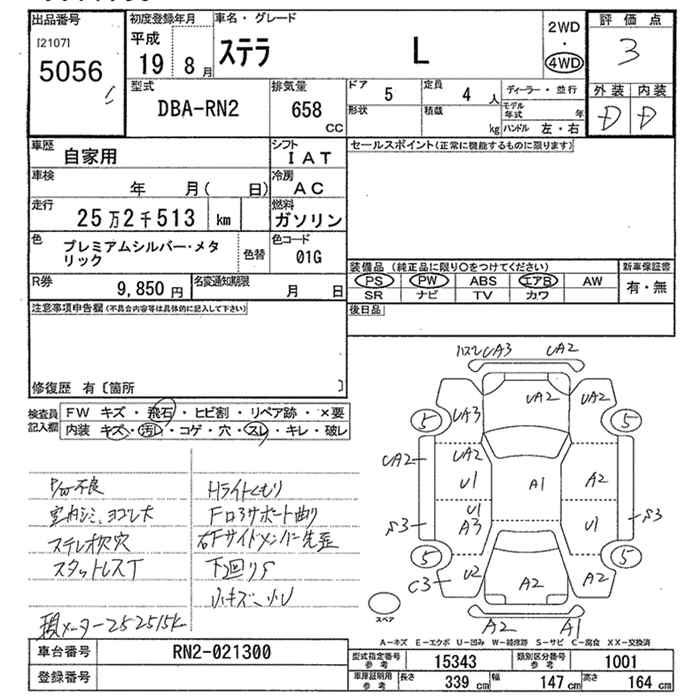 出品番号
[2107]
5056
初度登録年月
平成
19 8月
車名・グレード
ステラ L
2WD
・
4WD
評価点
3
外装 内装
D D
型式
DBA-RN2
排気量
658
CC
ドア
5
定員
4 人
形状
積載
kg
ディーラー・並行
モデル年式 年
ハンドル 左・右
車歴
自家用
シフト
IAT
セールスポイント(正常に機能するものに限ります)
車検
年 月( 日)
冷房
AC
走行
25万2千513 km
燃料
ガソリン
色
プレミアムシルバー・メタリック
色替
色コード
01G
R券
9,850 円
名変通知期限
月 日
装備品 (純正品に限り○をつけてください)
PS PW ABS エアB AW
SR ナビ TV カワ
新車保証書
有・無
後日品
注意事項申告欄(不具合内容等は具体的に記入して下さい)
修復歴 有〔箇所 〕
検査員記入欄
FW キズ・飛石・ヒビ割・リペア跡・×要
内装 キズ・汚レ・コゲ・穴・スレ・キレ・破レ
P/W不良
室内シミ、ヨゴレ大
ステレオ欠穴
スタットレスT
現メーター252515K
Hライトくもり
Fロアサポート曲り
右Fサイドメンバー先歪
下回りS
小キズ、小U
UA3 UA2
5 UA3 UA2 UA2 5
UA2 UA2
U1 A1 A2
U1
S3 A3 U1 S3
5 U2 A2 A2 5
C3
A2 A1
スペア
A-キズ E-エクボ U-凹み W-補修跡 S-サビ C-腐食 XX-交換済
車台番号
RN2-021300
登録番号
型式指定番号
参考
15343
類別区分番号
参考
1001
車庫証明用
参考
長さ
339 cm
幅
147 cm
高さ
164 cm